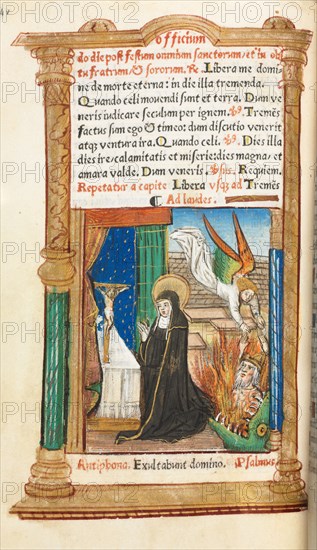 officium
do die post festum omnium sanctorum/et in obi
tu fratrum & sororum. Re. Libera me domi
ne de morte eterna: in die illa tremenda.
Quando celi movendi sunt et terra. Dum ve
neris iudicare seculum per ignem. Tremēs
factus sum ego & timeo: dum discutio venerit
atqʒ ventura ira. Quando celi. Dies illa
dies ire/calamitatis et miserie: dies magna/et
amara valde. Dum veneris. Requiem.
Repetatur a capite Libera usqʒ ad Tremēs
¶ Ad laudes.
Antiphona. Exultabunt domino. Psalmus.
PHOTO12